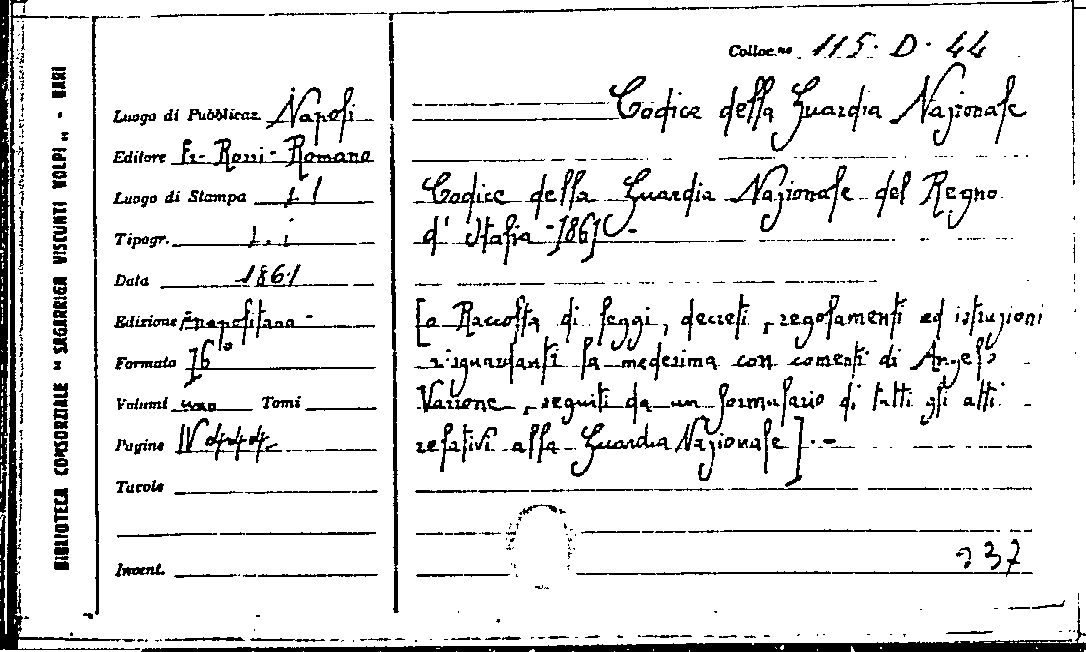 BIBLIOTECA CONSORZIALE "SAGARRIGA VISCONTI VOLPI" - BARI
Colloc.ne 115. D. 44
Luogo di Pubblicaz. Napoli
Editore Fr. Rossi-Romano
Luogo di Stampa
Tipogr.
Data 1861
Edizione napolitana -
Formato 16°
Volumi uno Tomi
Pagine IV 444
Tavole
Invent.
Codice della Guardia Nazionale
Codice della Guardia Nazionale del Regno
d'Italia -1861- -
[o Raccolta di leggi, decreti, regolamenti ed istruzioni
risguardanti la medesima con comenti di Angelo
Varrone, seguiti da un formulario di tutti gli atti
relativi alla Guardia Nazionale]. -
237